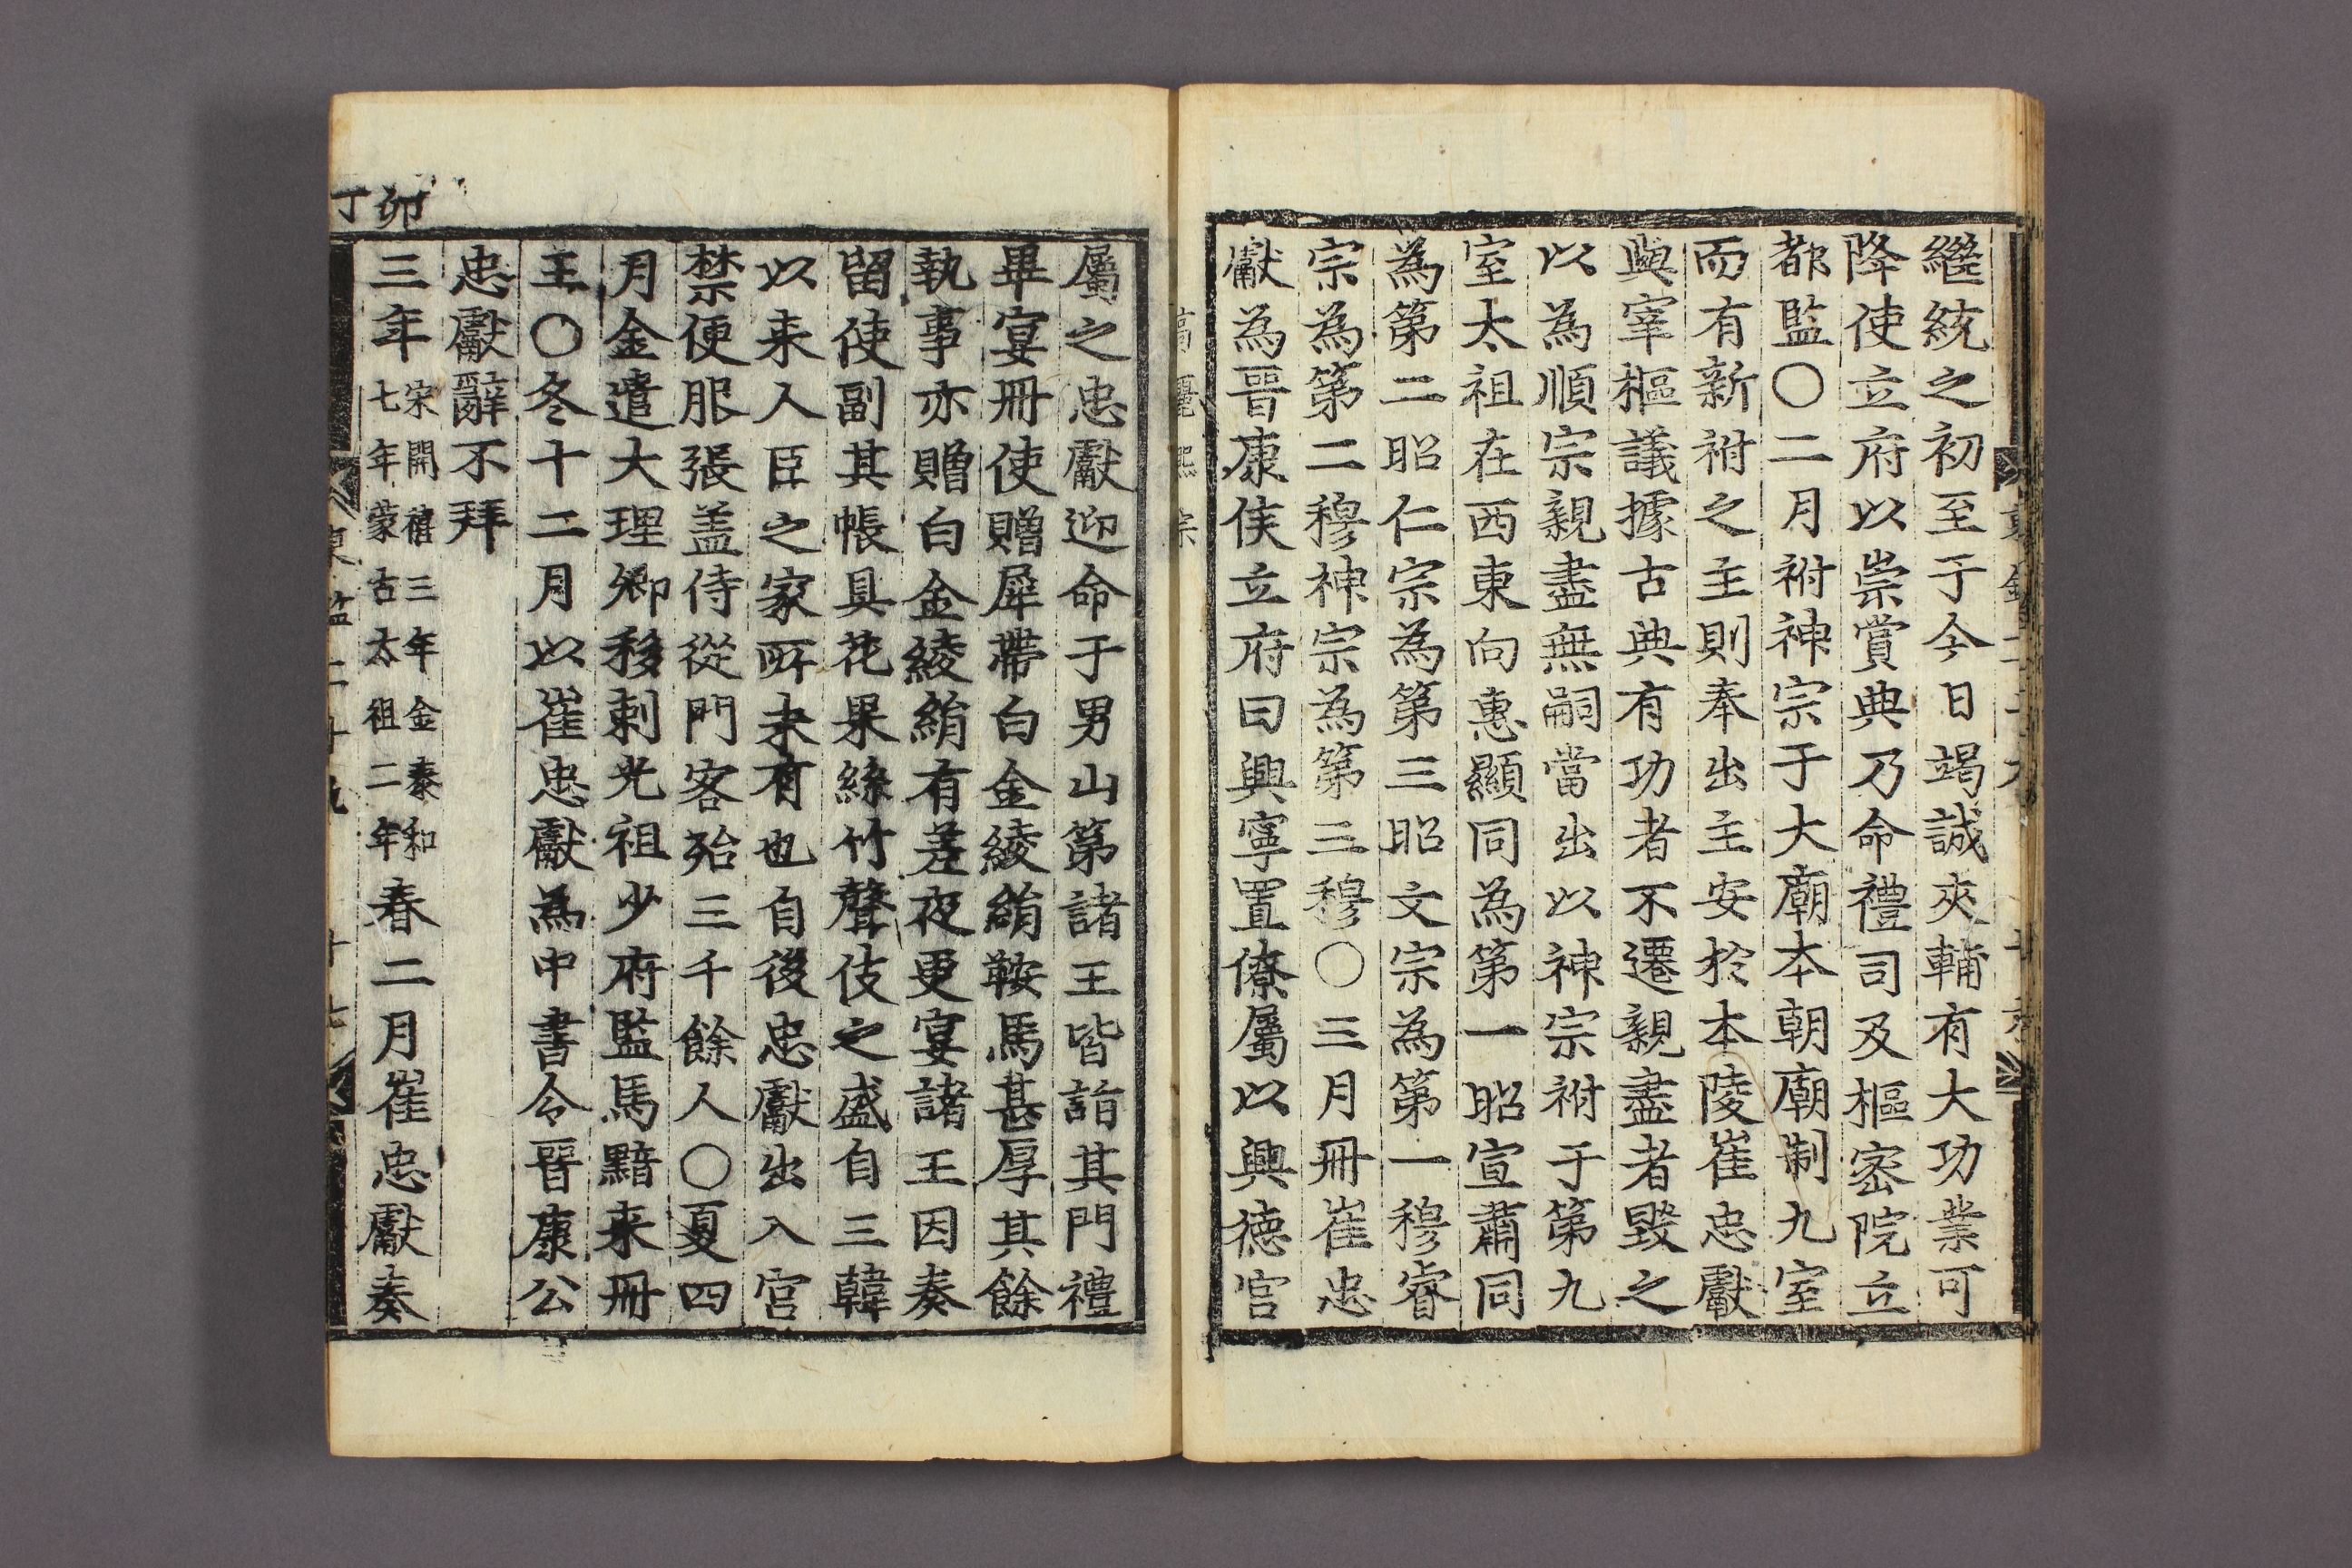 繼統之初至于今日竭誠夾輔有大功業可
降使立府以崇賞典乃命禮司及樞密院立
都監〇二月祔神宗于大廟本朝廟制九室
而有新祔之主則奉出主安於本陵崔忠獻
與宰樞議據古典有功者不遷親盡者毀之
以為順宗親盡無嗣當出以神宗祔于第九
室太祖在西東向惠顯同為第一昭宣肅同
為第二昭仁宗為第三昭文宗為第一穆睿
宗為第二穆神宗為第三穆〇三月冊崔忠
獻為晉康侯立府曰興寧置僚屬以興德宮
屬之忠獻迎命于男山第諸王皆詣其門禮
畢宴冊使贈犀帶白金綾絹鞍馬甚厚其餘
執事亦贈白金綾絹有差夜更宴諸王因奏
留使副其帳具花果絲竹聲伎之盛自三韓
以来人臣之家所未有也自後忠獻出入宮
禁便服張盖侍從門客殆三千餘人〇夏四
月金遣大理卿移剌光祖少府監馬黯来冊
王〇冬十二月以崔忠獻為中書令晉康公
忠獻辭不拜
丁卯
三年宋開禧三年金泰和七年蒙古太祖二年春二月崔忠獻奏